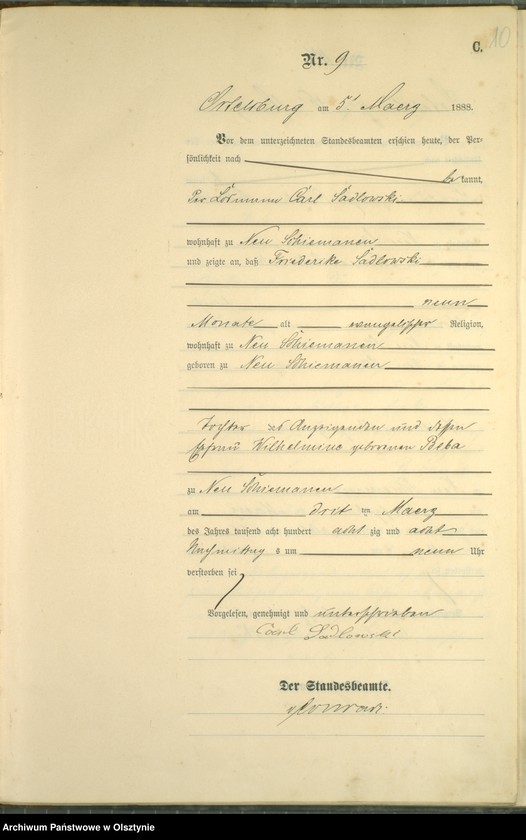 C. 10
Nr. 9
Ortelsburg am 5t Maerz 1888.
Vor dem unterzeichneten Standesbeamten erschien heute, der Per-
sönlichkeit nach
be kannt,
Der Losmann Carl Sadlowski
wohnhaft zu Neu Schiemanen
und zeigte an, daß Friederike Sadlowski
neun
Monate alt evangelischer Religion,
wohnhaft zu Neu Schiemanen
geboren zu Neu Schiemanen
Tochter des Anzeigenden und dessen
Ehefrau Wilhelmine geborenen
zu Neu Schiemanen
am drit ten Maerz
des Jahres tausend acht hundert acht zig und acht
Nachmittag s um neun Uhr
verstorben sei
Vorgelesen, genehmigt und unterschrieben
Carl Sadlowski
Der Standesbeamte.
Archiwum Państwowe w Olsztynie